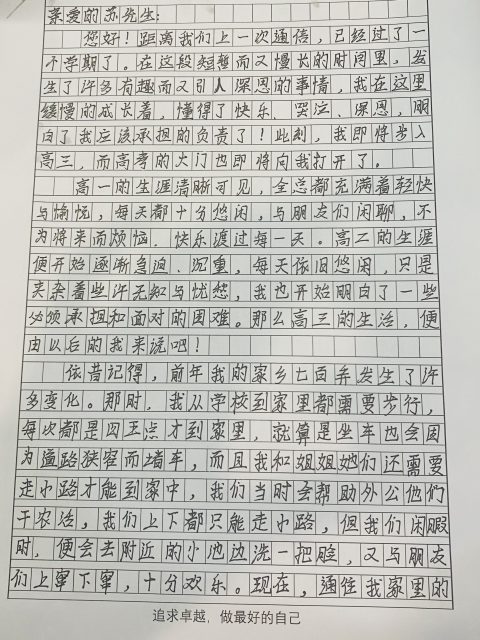 亲爱的苏先生:
您好！距离我们上一次通信，已经过了一
个学期了。在这段短暂而又慢长的时间里，发
生了许多有趣而又引人深思的事情，我在这里
缓慢的成长着，懂得了快乐、哭泣、深思，明
白了我应该承担的负责了！此刻，我即将步入
高三，而高考的大门也即将向我打开了。
高一的生涯清晰可见，全总都充满着轻快
与愉悦，每天都十分悠闲，与朋友们闲聊，不
为将来而烦恼，快乐渡过每一天。高二的生涯
便开始逐渐急迫、沉重，每天依旧悠闲，只是
夹杂着些许无知与忧愁，我也开始明白了一些
必须承担和面对的困难。那么高三的生活，便
由以后的我来说吧！
依昔记得，前年我的家乡七百弄发生了许
多变化。那时，我从学校到家里都需要步行，
每次都是四五点才到家里，就算是坐车也会因
为道路狭窄而堵车，而且我和姐姐她们还需要
走小路才能到家中，我们当时会帮助外公他们
干农活，我们上下都只能走小路，但我们闲暇
时，便会去附近的小池边洗一把脸，又与朋友
们上窜下窜，十分欢乐。现在，通往我家里的
追求卓越，做最好的自己